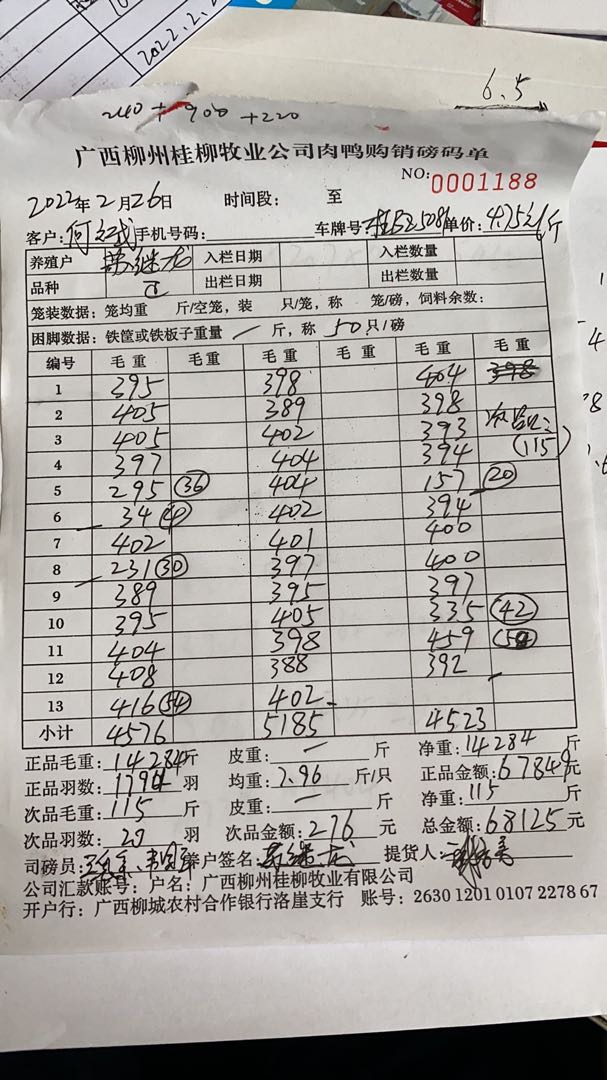 2022.2.2
6.5
240+900+220
广西柳州桂柳牧业公司肉鸭购销磅码单
NO: 0001188
2022年2月26日 时间段: 至
客户: 何 手机号码: 车牌号: 桂BZ5081 单价: 4.75元/斤
养殖户 龙 入栏日期 入栏数量
品种 出栏日期 出栏数量
笼装数据: 笼均重 斤/空笼, 装 只/笼, 称 笼/磅, 饲料余数:
困脚数据: 铁筐或铁板子重量 — 斤, 称 50只/磅
编号 毛重 毛重 毛重 毛重 毛重 毛重
1 395 398 404 398
2 405 389 398
3 405 402 393 (115)
4 397 404 394
5 295 36 404 157 20
6 34 4 402 394
7 402 401 400
8 231 30 397 400
9 389 395 397
10 395 405 335 42
11 404 398 459
12 408 388 392
13 416 54 402
小计 4576 5185 4523
正品毛重: 14284斤 皮重: — 斤 净重: 14284 斤
正品羽数: 1794 羽 均重: 7.96 斤/只 正品金额: 67849元
次品毛重: 115 斤 皮重: — 斤 净重: 115 斤
次品羽数: 20 羽 次品金额: 276 元 总金额: 68125元
司磅员: 养户签名: 龙 提货人:
公司汇款账号: 户名: 广西柳州桂柳牧业有限公司
开户行: 广西柳城农村合作银行洛崖支行 账号: 2630 1201 0107 2278 67